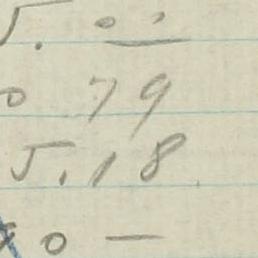 5.00
0 79
5.18
0 —